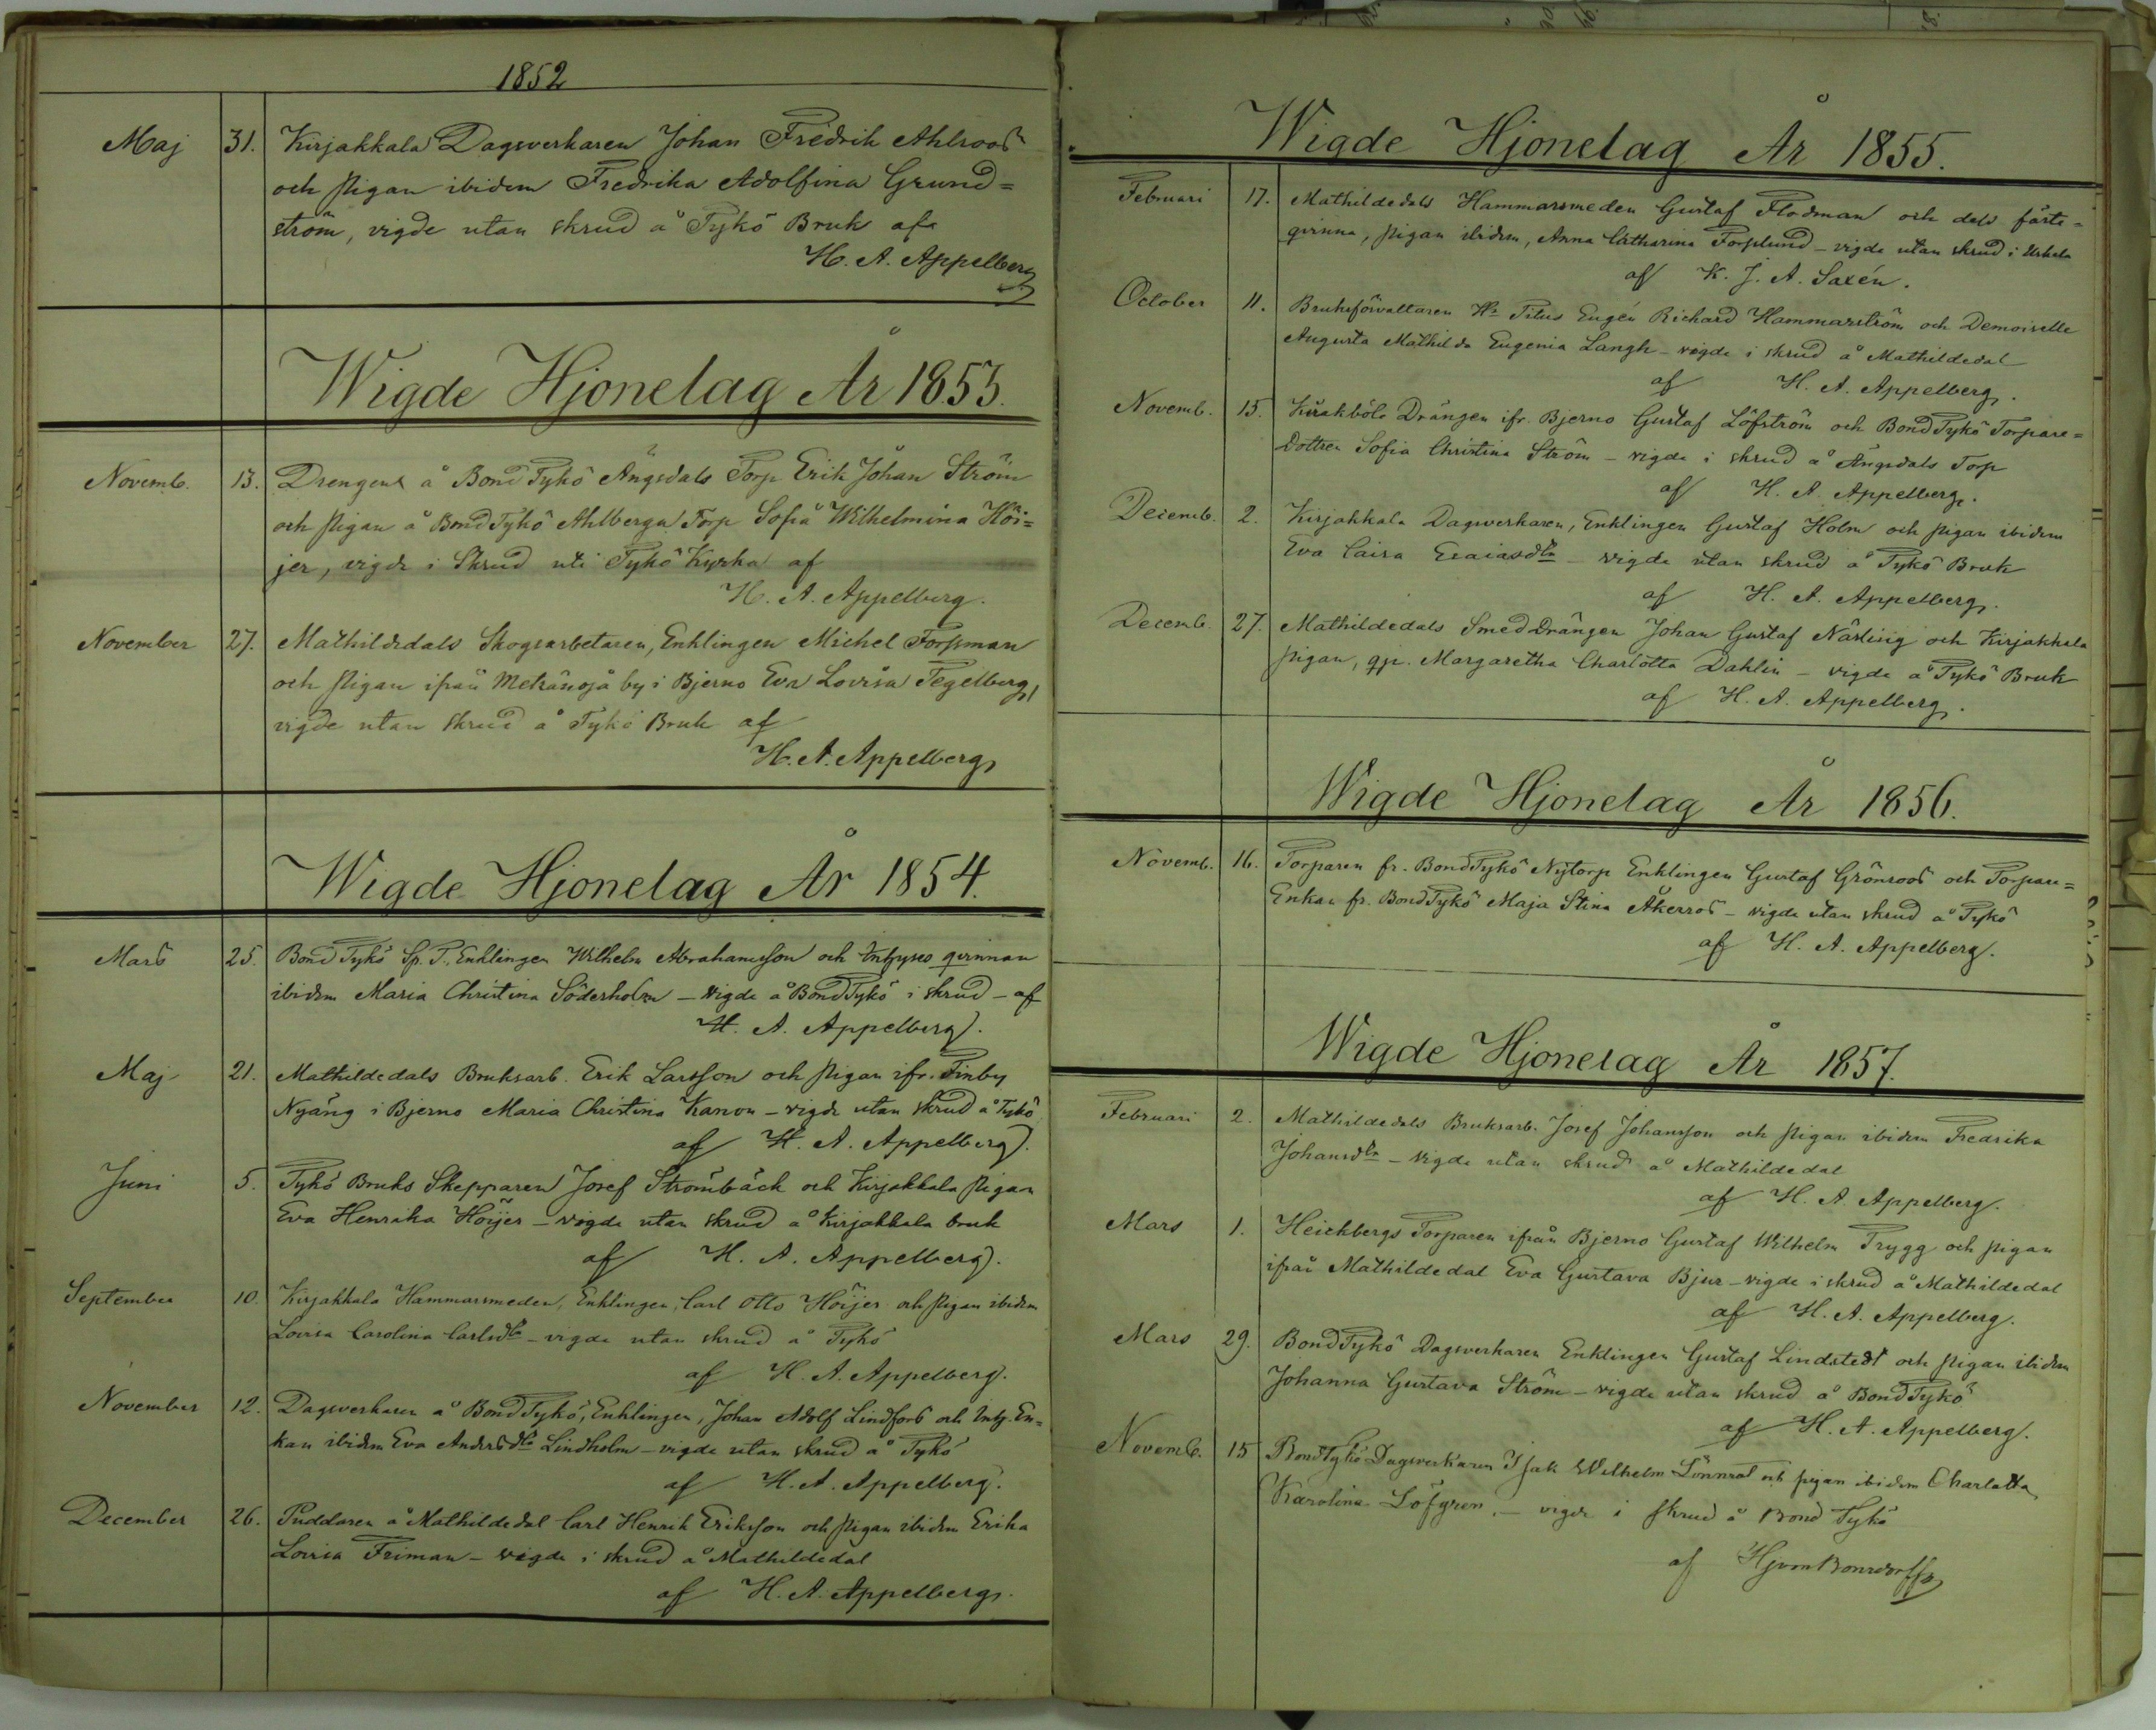 1852
Maj 31. Kirjakkala Dagsverkaren Johan Fredrik Ahlroos
och pigan ibidem Fredrika Adolfina Grund=
ström, vigde utan skrud å Tykö Bruk af
H. A. Appelberg
Wigde Hjonelag År 1853.
Novemb. 13. Drengen å BondTykö Ängsdals Torp Erik Johan Ström
och pigan å BondTykö Ahlberga Torp Sofia Wilhelmina Höi=
jer, vigde i Skrud uti Tykö Kyrka af
H. A. Appelberg.
November 27. Mathildedals Skogsarbetaren, Enklingen Michel Forssman
och pigan ifrån by i Bjerno Eva Lovisa Tegelberg,
vigde utan skrud å Tykö Bruk af
H. A. Appelberg
Wigde Hjonelag År 1854.
Mars 25. BondTykö Sp. T. Enklingen Wilhelm Abrahamsson och Inhyses qvinnan
ibidem Maria Christina Söderholm – vigde å BondTykö i skrud – af
H. A. Appelberg.
Maj 21. Mathildedals Bruksarb. Erik Larsson och pigan ifr. Finby
Nyäng i Bjerno Maria Christina Kanon – vigde utan skrud å Tykö
af H. A. Appelberg.
Juni 5. Tykö Bruks Skepparen Josef Strömbäck och Kirjakkala pigan
Eva Henrika Höijer – vigde utan skrud å Kirjakkala bruk
af H. A. Appelberg.
September 10. Kirjakkala Hammarsmeden, Enklingen, Carl Otto Höijer och pigan ibidem
Lovisa Carolina Carlsdtr – vigde utan skrud å Tykö
af H. A. Appelberg.
November 12. Dagsverkaren å BondTykö, Enklingen, Johan Adolf Lindfors och Inh. En=
kan ibidem Eva Andersdtr Lindholm – vigde utan skrud å Tykö
af H. A. Appelberg.
December 26. Puddaren å Mathildedal Carl Henrik Eriksson och pigan ibidem Erika
Lovisa Friman – vigde i skrud å Mathildedal
af H. A. Appelberg.
Wigde Hjonelag År 1855.
Februari 17. Mathildedals Hammarsmeden Gustaf Flodman och dess fäste=
qvinna, pigan ibidem, Anna Catharina Forsslund – vigde utan skrud i Uskela
af K. J. A. Saxén.
October 11. Bruksförvaltaren Hr Titus Eugén Richard Hammarström och Demoiselle
Augusta Mathilda Eugenia Langh – vigde i skrud å Mathildedal
af H. A. Appelberg.
Novemb. 15. Drängen ifr. Bjerno Gustaf Löfström och BondTykö Torpare=
Dottren Sofia Christina Ström – vigde i skrud å Ängsdals Torp
af H. A. Appelberg.
Decemb. 2. Kirjakkala Dagsverkaren, Enklingen Gustaf Holm och pigan ibidem
Eva Caisa Esaiasdtr – vigde utan skrud å Tykö Bruk
af H. A. Appelberg.
Decemb. 27. Mathildedals SmedDrängen Johan Gustaf Närling och Kirjakkala
pigan, qp. Margaretha Charlotta Dahlin – vigde å Tykö Bruk
af H. A. Appelberg.
Wigde Hjonelag År 1856.
Novemb. 16. Torparen fr. BondTykö Nytorp Enklingen Gustaf Grönroos och Torpare=
Enkan fr. BondTykö Maja Stina Åkerros – vigde utan skrud å Tykö
af H. A. Appelberg.
Wigde Hjonelag År 1857.
Februari 2. Mathildedals Bruksarb. Josef Johansson och pigan ibidem Fredrika
Johansdtr – vigde utan skrud å Mathildedal
af H. A. Appelberg.
Mars 1. Heickbergs Torparen ifrån Bjerno Gustaf Wilhelm Trygg och pigan
ifrån Mathildedal Eva Gustava Bjur – vigde i skrud å Mathildedal
af H. A. Appelberg.
Mars 29. BondTykö Dagsverkaren Enklingen Gustaf Lindstedt och pigan ibidem
Johanna Gustava Ström – vigde utan skrud å BondTykö
af H. A. Appelberg.
Novemb. 15 BondTykö Dagsverkaren Isak Wilhelm Lönnrot och pigan ibidem Charlotta
Karolina Löfgren, – vigde i skrud å Bond Tykö
af HjvonBonsdorff